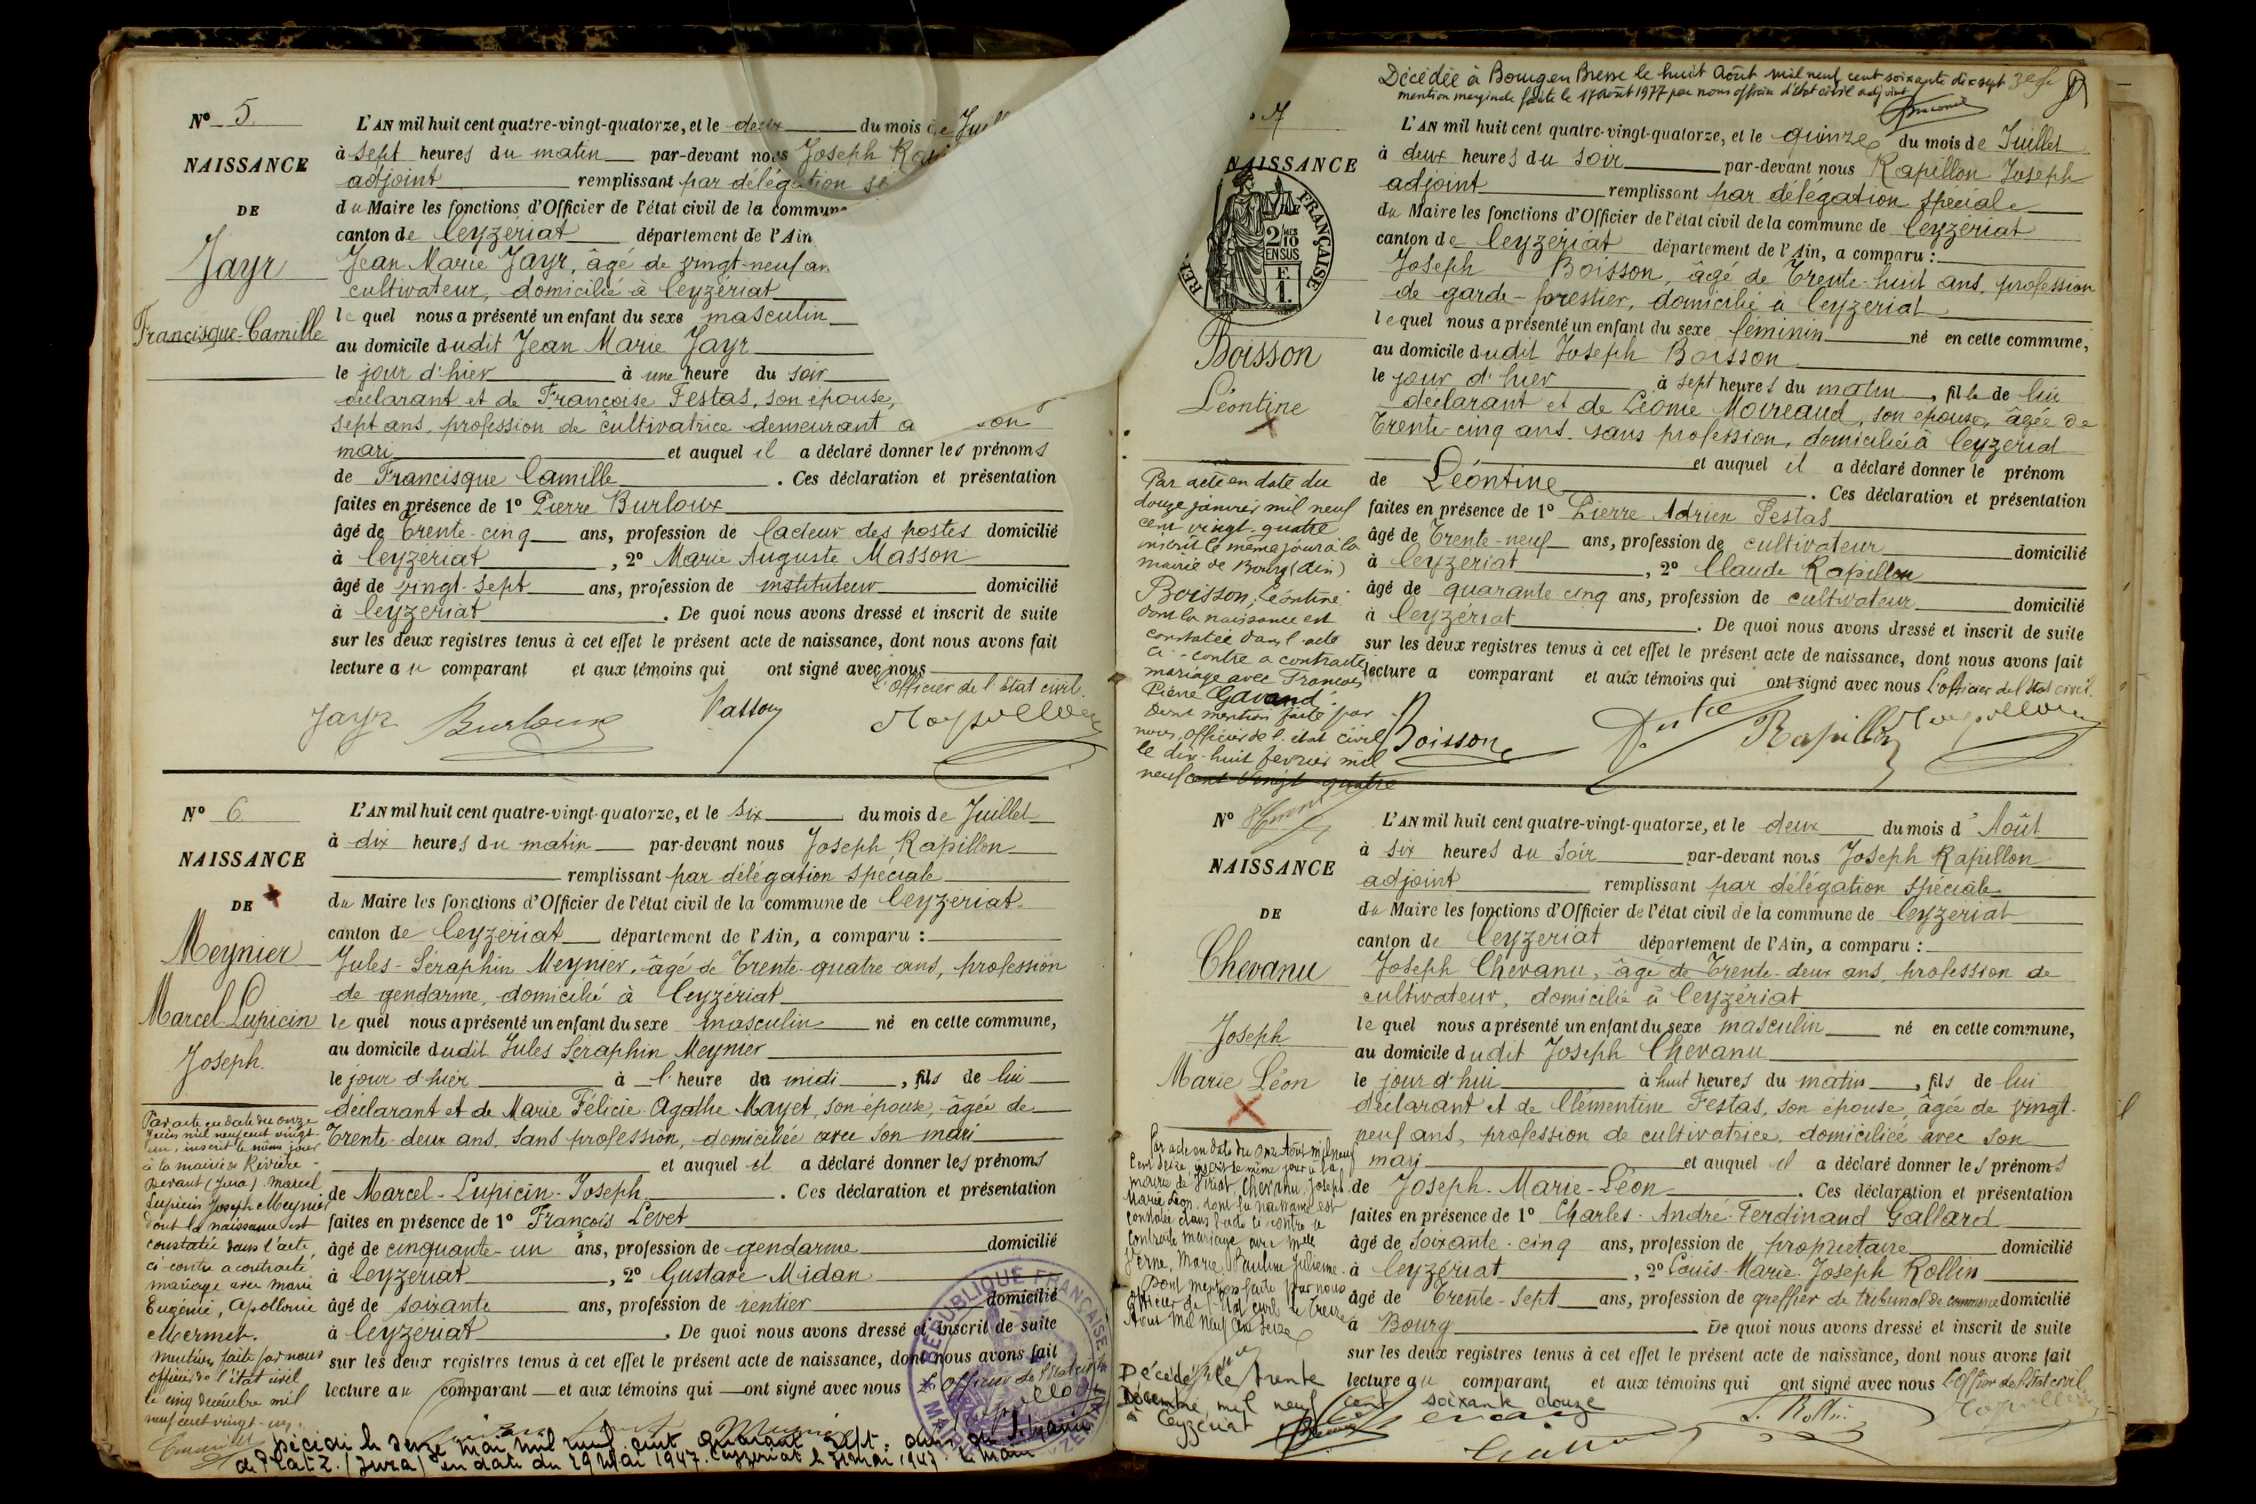 Nº 5
NAISSANCE
DE
Jayr
Francisque-Camille
L'AN mil huit cent quatre-vingt-quatorze, et le deux du mois de
à sept heures du matin par-devant nous Joseph
adjoint remplissant par délégation
du Maire les fonctions d'Officier de l'état civil de la commune
canton de Ceyzériat département de l'Ain
Jean Marie Jayr, âgé de vingt-neuf an
cultivateur, domicilié à Ceyzériat
lequel nous a présenté un enfant du sexe masculin
au domicile dudit Jean Marie Jayr
le jour d'hier à une heure du soir
déclarant et de Françoise Festas, son épouse,
sept ans, profession de cultivatrice demeurant a son
mari et auquel il a déclaré donner les prénoms
de Francisque Camille . Ces déclaration et présentation
faites en présence de 1º Pierre Burloux
âgé de Trente-cinq ans, profession de facteur des postes domicilié
à Ceyzériat , 2º Marie Auguste Masson
âgé de vingt-sept ans, profession de instituteur domicilié
à Ceyzériat . De quoi nous avons dressé et inscrit de suite
sur les deux registres tenus à cet effet le présent acte de naissance, dont nous avons fait
lecture au comparant et aux témoins qui ont signé avec nous
l'Officier de l'État civil.
Jayr Burloux Masson Rapillon
Nº 6
NAISSANCE
DE
Meynier
Marcel-Lupicin
Joseph.
L'AN mil huit cent quatre-vingt-quatorze, et le six du mois de Juillet
à dix heures du matin par-devant nous Joseph Rapillon
remplissant par délégation spéciale
du Maire les fonctions d'Officier de l'état civil de la commune de Ceyzériat
canton de Ceyzériat département de l'Ain, a comparu :
Jules-Séraphin Meynier, âgé de Trente-quatre ans, profession
de gendarme, domicilié à Ceyzériat
lequel nous a présenté un enfant du sexe masculin né en cette commune,
au domicile dudit Jules Séraphin Meynier
le jour d'hier à l'heure de midi , fils de lui
déclarant et de Marie Félicie Agathe Mayet, son épouse, âgée de
Trente-deux ans, sans profession, domiciliée avec son mari
et auquel il a déclaré donner les prénoms
de Marcel-Lupicin-Joseph . Ces déclaration et présentation
faites en présence de 1º François Levet
âgé de cinquante-un ans, profession de gendarme domicilié
à Ceyzériat , 2º Gustave Midan
âgé de soixante ans, profession de rentier domicilié
à Ceyzériat . De quoi nous avons dressé et inscrit de suite
sur les deux registres tenus à cet effet le présent acte de naissance, dont nous avons fait
lecture au comparant et aux témoins qui ont signé avec nous
l'officier de l'état civil
Par acte en date du onze
Juin mil neuf cent vingt-
un, inscrit le même jour
à la mairie de Rivière-
Devant (Jura) Marcel
Lupicin Joseph Meynier
dont la naissance est
constatée dans l'acte
ci-contre a contracté
mariage avec Marie
Eugénie, Apollonie
Mermet.
Mention faite par nous
officier de l'état civil
le cinq décembre mil
neuf cent vingt-un.
RÉPUBLIQUE FRANÇAISE
Décédé le seize mai mil neuf cent quarante sept
de Pratz (Jura) en date du 29 mai 1947. Ceyzériat le 31 mai 1947 le Maire
Décédée à Bourg en Bresse le huit Août mil neuf cent soixante dix sept
mention marginale faite le 17 août 1977 par nous officier d'état civil adjoint
7
NAISSANCE
FRANÇAISE
2/10 EN SUS
F. 1.
Boisson
Léontine
L'AN mil huit cent quatre-vingt-quatorze, et le quinze du mois de Juillet
à deux heures du soir par-devant nous Rapillon Joseph
adjoint remplissant par délégation spéciale
du Maire les fonctions d'Officier de l'état civil de la commune de Ceyzériat
canton de Ceyzériat département de l'Ain, a comparu :
Joseph Boisson, âgé de Trente-huit ans, profession
de garde-forestier, domicilié à Ceyzériat
lequel nous a présenté un enfant du sexe féminin né en cette commune,
au domicile dudit Joseph Boisson
le jour d'hier à sept heures du matin , fille de lui
déclarant et de Léonie Moireaud, son épouse, âgée de
Trente-cinq ans, sans profession, domiciliée à Ceyzériat
et auquel il a déclaré donner le prénom
de Léontine . Ces déclaration et présentation
faites en présence de 1º Pierre Adrien Festas
âgé de Trente-neuf ans, profession de cultivateur domicilié
à Ceyzériat , 2º Claude Rapillon
âgé de quarante cinq ans, profession de cultivateur domicilié
à Ceyzériat . De quoi nous avons dressé et inscrit de suite
sur les deux registres tenus à cet effet le présent acte de naissance, dont nous avons fait
lecture a comparant et aux témoins qui ont signé avec nous l'officier de l'État civil.
Boisson Rapillon Rapillon
Par acte en date du
douze janvier mil neuf
cent vingt-quatre
inscrit le même jour à la
mairie de Bourg (Ain)
Boisson, Léontine
dont la naissance est
constatée dans l'acte
ci-contre a contracté
mariage avec François
Pierre Gavand.
Dont mention faite par
nous, officier de l'état civil
le dix-huit février mil
neuf cent vingt-quatre
Nº 8
NAISSANCE
DE
Chevanu
Joseph
Marie Léon
L'AN mil huit cent quatre-vingt-quatorze, et le deux du mois d'Août
à six heures du soir par-devant nous Joseph Rapillon
adjoint remplissant par délégation spéciale
du Maire les fonctions d'Officier de l'état civil de la commune de Ceyzériat
canton de Ceyzériat département de l'Ain, a comparu :
Joseph Chevanu, âgé de Trente-deux ans, profession de
cultivateur, domicilié à Ceyzériat
lequel nous a présenté un enfant du sexe masculin né en cette commune,
au domicile dudit Joseph Chevanu
le jour d'hui à huit heures du matin , fils de lui
déclarant et de Clémentine Festas, son épouse, âgée de vingt-
neuf ans, profession de cultivatrice, domiciliée avec son
mari et auquel il a déclaré donner les prénoms
de Joseph-Marie-Léon . Ces déclaration et présentation
faites en présence de 1º Charles-André-Ferdinand Gallard
âgé de soixante-cinq ans, profession de propriétaire domicilié
à Ceyzériat , 2º Louis-Marie Joseph Rollin
âgé de Trente-sept ans, profession de greffier de tribunal de commerce domicilié
à Bourg . De quoi nous avons dressé et inscrit de suite
sur les deux registres tenus à cet effet le présent acte de naissance, dont nous avons fait
lecture au comparant et aux témoins qui ont signé avec nous l'officier de l'État civil
Par acte en date du onze Août mil neuf
cent seize, inscrit le même jour à la
mairie de Viriat, Chevanu, Joseph
Marie Léon, dont la naissance est
constatée dans l'acte ci-contre a
contracté mariage avec Melle
Verne, Marie, Pauline Julienne.
Dont mention faite par nous
officier de l'état civil le treize
Août mil neuf cent seize
Décédé le trente
Décembre mil neuf cent soixante douze
à Ceyzériat
L. Rollin Rapillon